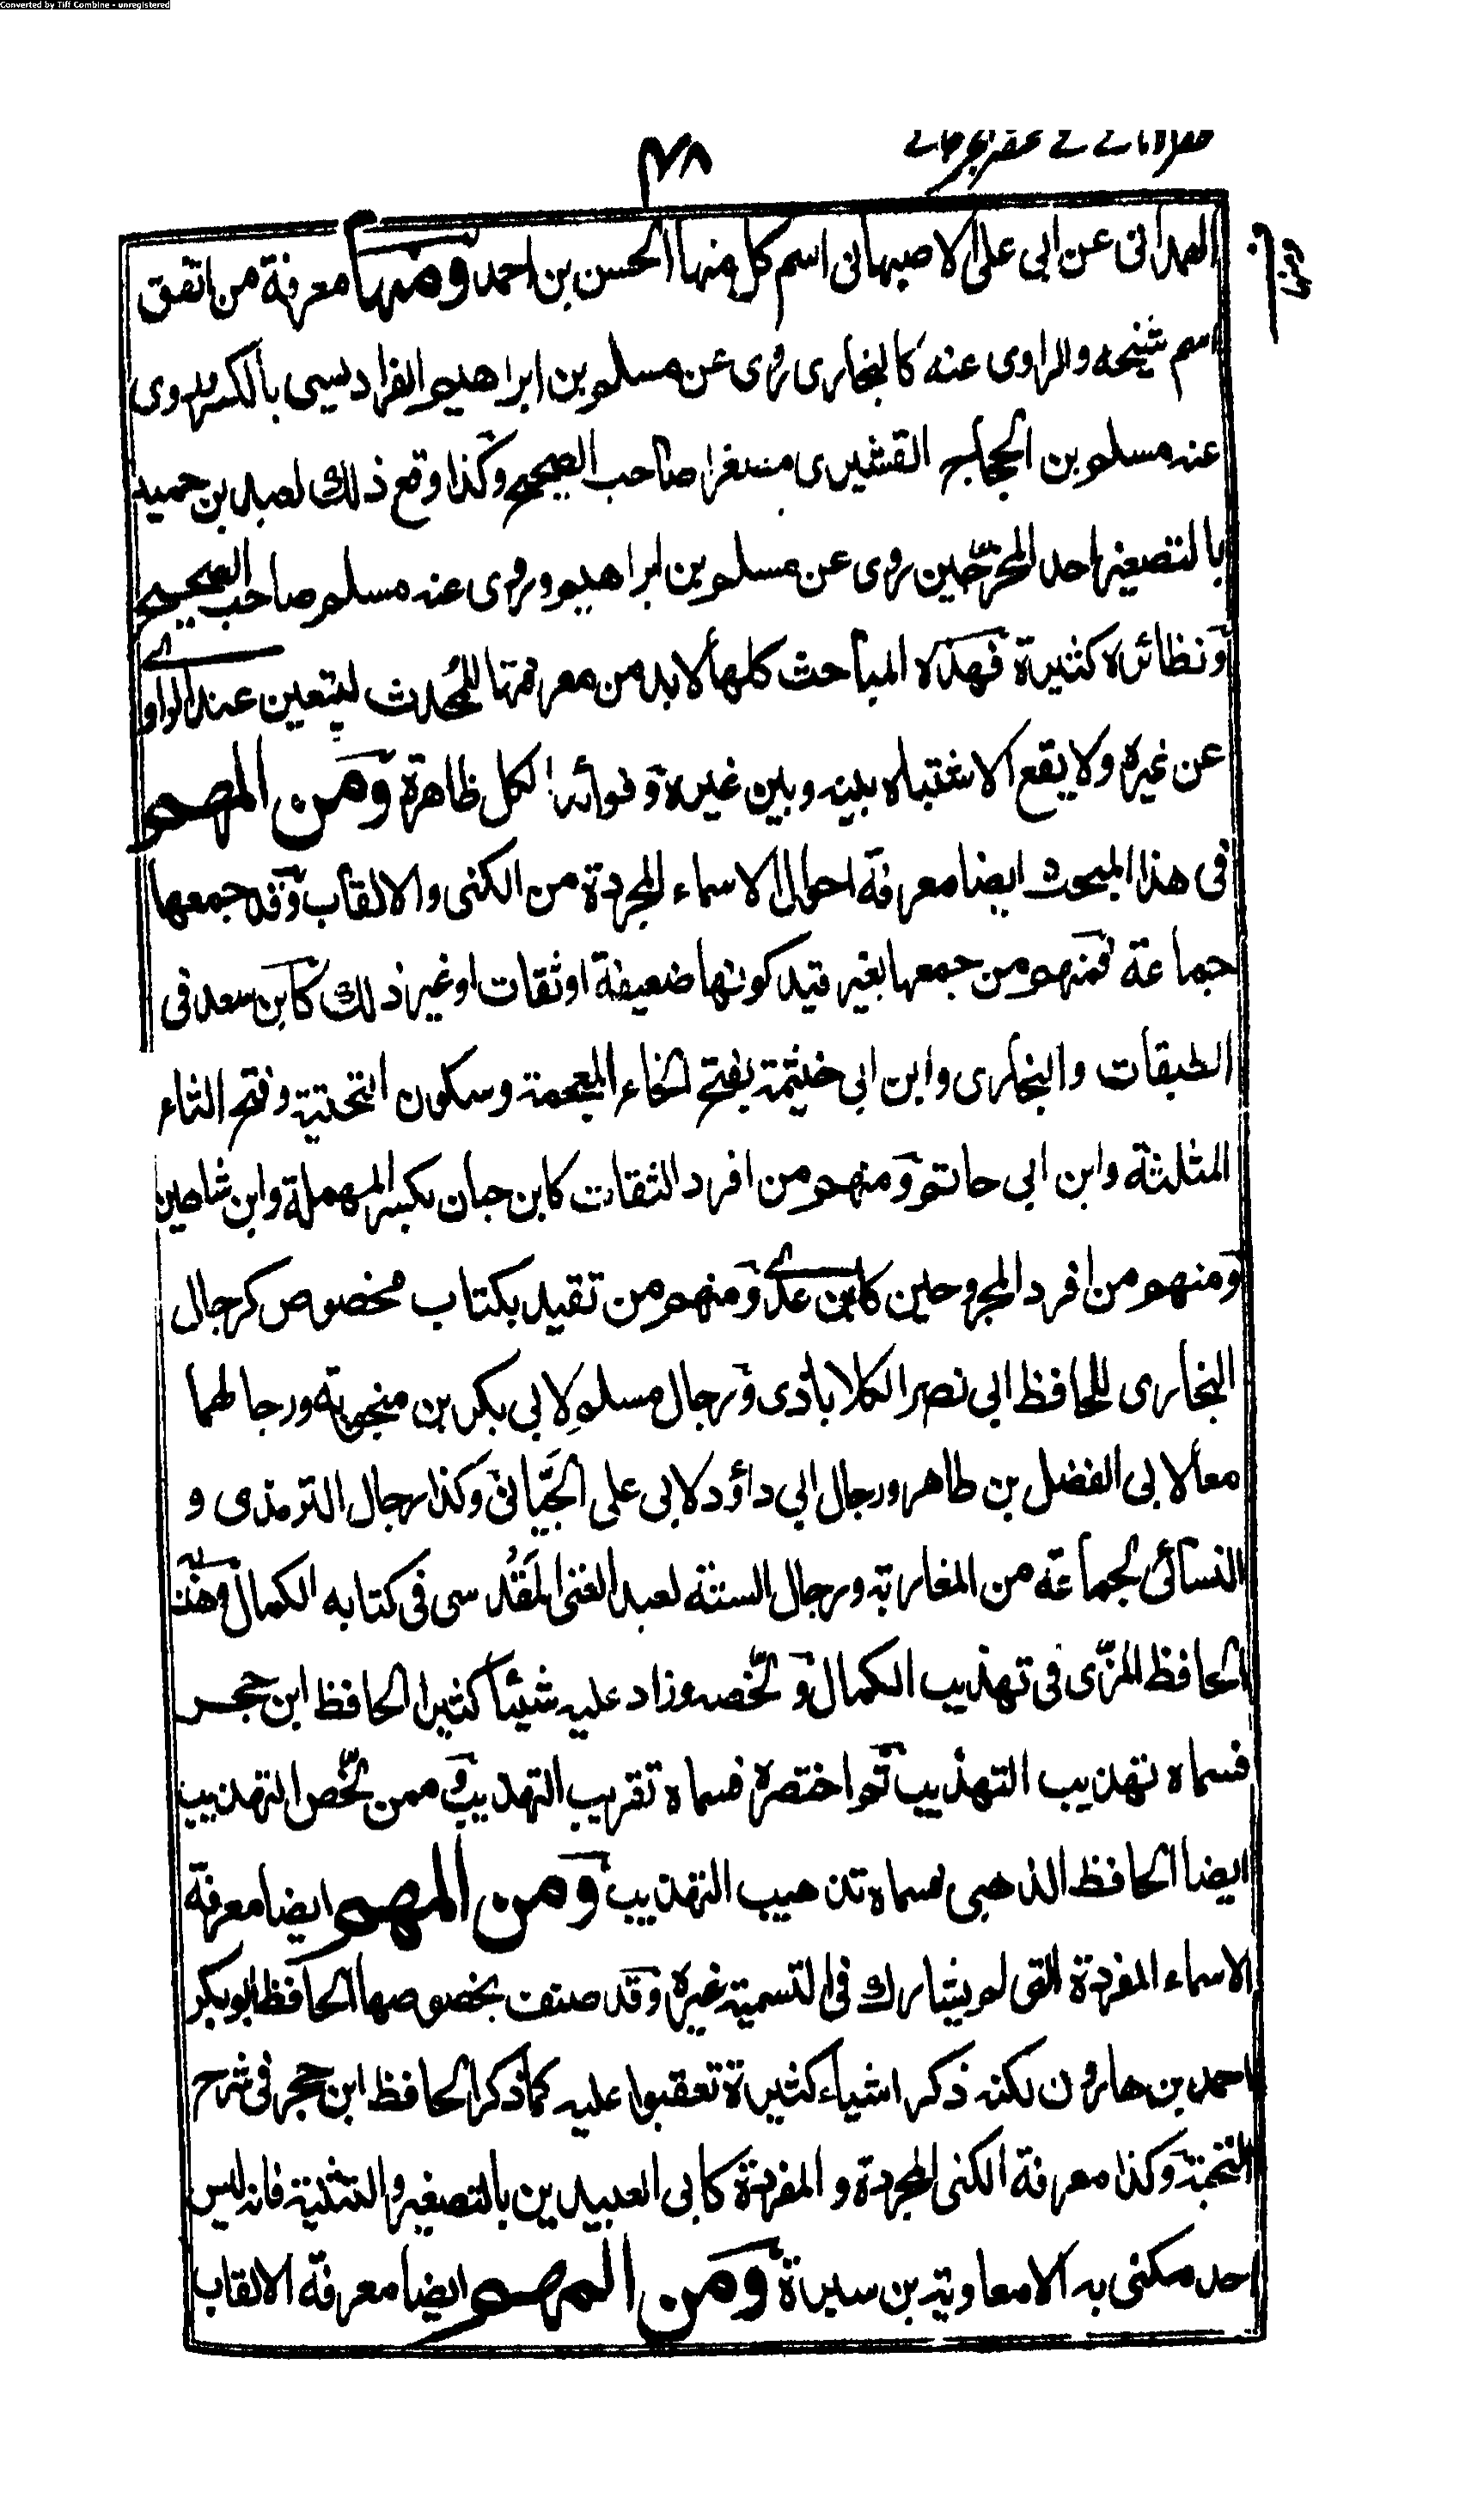 Converted by Tiff Combine - unregistered
٤٨
الهمدانى عن ابى على الاصبهانى اسم كل منهما الحسن بن احمد ومنها معرفة من اتفق
اسم شيخه والراوى عنه كالبخارى روى عن مسلم بن ابراهيم الفراديسى بالكسر وروى
عنه مسلم بن الحجاج القشيرى صاحب الصحيح وكذا وقع ذلك لعبد بن حميد
بالتصغير احد المخرّجين روى عن مسلم بن ابراهيم وروى عنه مسلم صاحب الصحيح
ونظائره كثيرة فهذه المباحث كلها لابد من معرفتها للمحدث ليتعين عنده الراوى
عن غيره ولا يقع الاشتباه بينه وبين غيره وفوائد الكل ظاهرة ومن المهم
فى هذا المبحث ايضا معرفة احوال الاسماء المجردة من الكنى والالقاب وقد جمعها
جماعة فمنهم من جمعها بغير قيد كونها ضعيفة او ثقات او غير ذلك كابن سعد فى
الطبقات والبخارى وابن ابى خيثمة بفتح الخاء المعجمة وسكون التحتية وفتح الثاء
المثلثة وابن ابى حاتم ومنهم من افرد الثقات كابن حبان بكسر المهملة وابن شاهين
ومنهم من افرد المجروحين كابن عدى ومنهم من تقيد بكتاب مخصوص كرجال
البخارى للحافظ ابى نصر الكلاباذى ورجال مسلم لابى بكر بن منجويه ورجالهما
معا لابى الفضل بن طاهر ورجال ابى داؤد لابى على الجَيّانى وكذا رجال الترمذى و
النسائى لجماعة من المغاربة ورجال الستة لعبد الغنى المَقْدُسى فى كتابه الكمال وهذبه
الحافظ المزّى فى تهذيب الكمال ولخّصه وزاد عليه شيئا كثيرا الحافظ ابن حجر
فسماه تهذيب التهذيب ثم اختصره فسماه تقريب التهذيب وممن لخّص التهذيب
ايضا الحافظ الذهبى سماه تذهيب التهذيب ومن المهم ايضا معرفة
الاسماء المفردة التى لم يشارك فى التسمية غيره وقد صنف بخصوصها الحافظ ابو بكر
احمد بن هارون لكنه ذكر اشياء كثيرة تعقبوا عليه كما ذكر الحافظ ابن حجر فى شرح
النخبة وكذا معرفة الكنى المجردة والمفردة كابى العبيدين بالتصغير والتثنية فانه ليس
احد مكنى به الا معاوية بن سبرة ومن المهم ايضا معرفة الالقاب